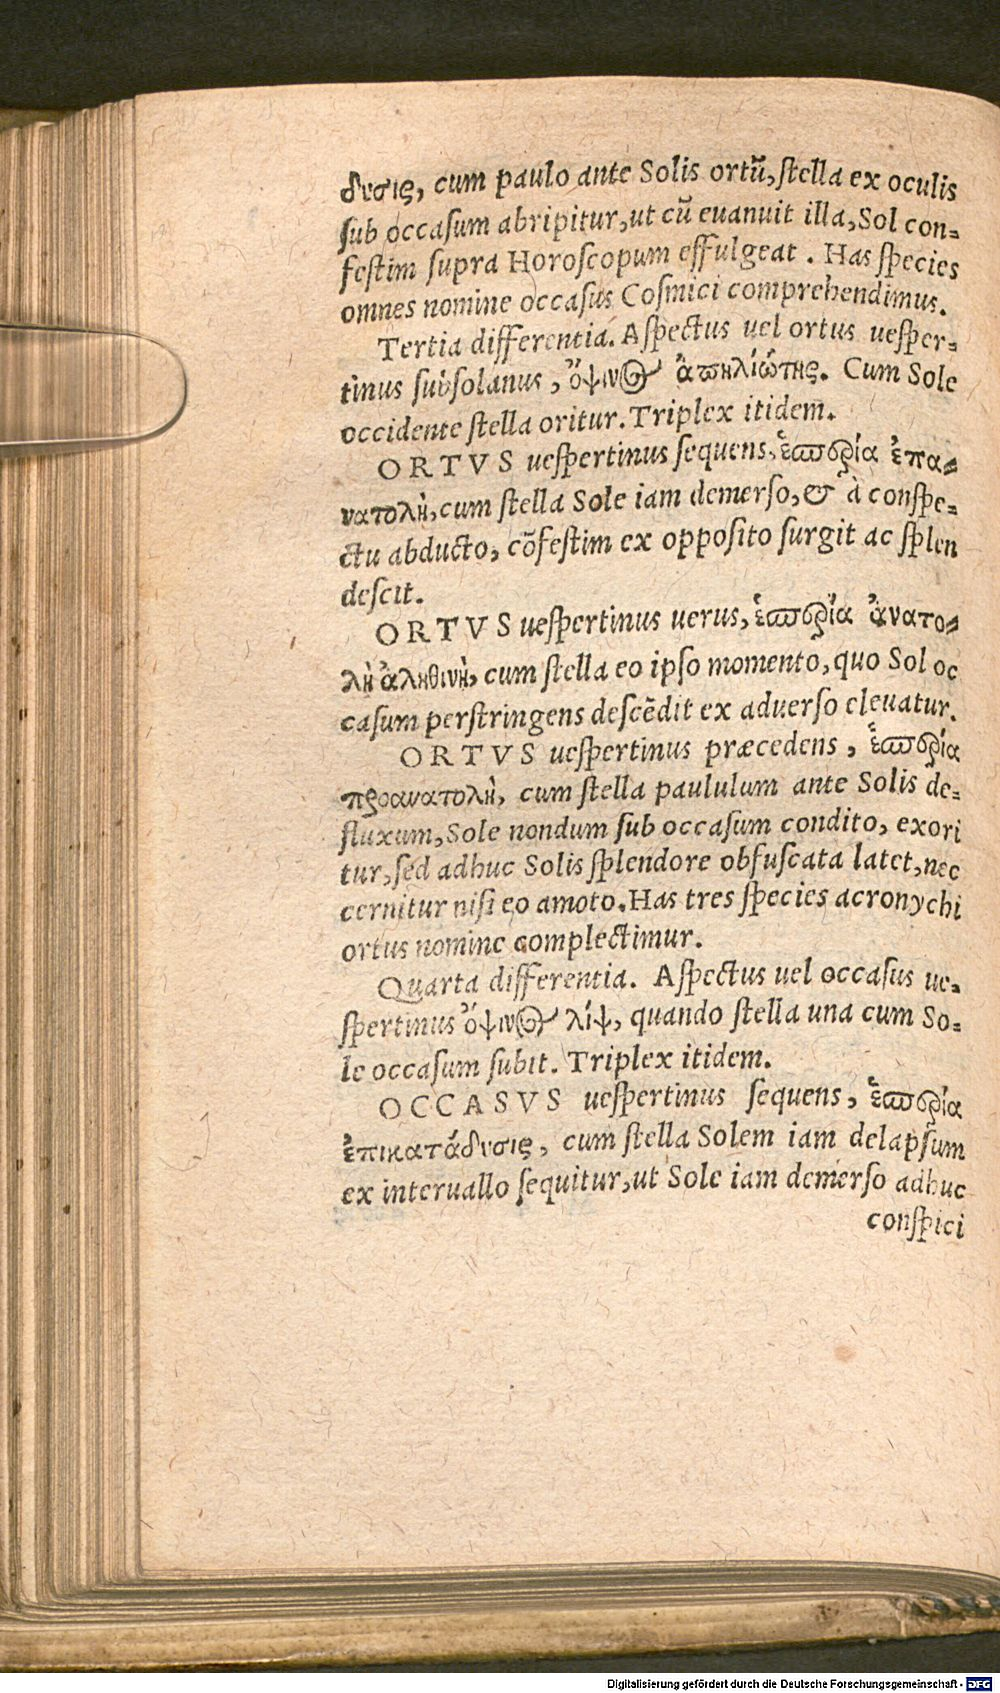 δυσις, cum paulo ante Solis ortũ, stella ex oculis
sub occasum abripitur, ut cũ euanuit illa, Sol con-
festim supra Horoscopum effulgeat. Has species
omnes nomine occasus Cosmici comprehendimus.
Tertia differentia. Aspectus uel ortus uesper-
tinus subsolanus, ὄψινος ἀπηλιώτης. Cum Sole
occidente stella oritur. Triplex itidem.
ORTVS uespertinus sequens, ἑσπερία ἐπα-
νατολὴ, cum stella Sole iam demerso, & à conspe-
ctu abducto, cõfestim ex opposito surgit ac splen
descit.
ORTVS uespertinus uerus, ἑσπερία ἀνατο-
λὴ ἀληθινὴ, cum stella eo ipso momento, quo Sol oc
casum perstringens descẽdit ex aduerso eleuatur.
ORTVS uespertinus præcedens, ἑσπερία
προανατολὴ, cum stella paululum ante Solis de-
fluxum, Sole nondum sub occasum condito, exori
tur, sed adhuc Solis splendore obfuscata latet, nec
cernitur nisi eo amoto. Has tres species acronychi
ortus nomine complectimur.
Quarta differentia. Aspectus uel occasus ue-
spertinus ὄψινος λίψ, quando stella una cum So-
le occasum subit. Triplex itidem.
OCCASVS uespertinus sequens, ἑσπερία
ἐπικατάδυσις, cum stella Solem iam delapsum
ex interuallo sequitur, ut Sole iam demerso adhuc
conspici
Digitalisierung gefördert durch die Deutsche Forschungsgemeinschaft - DFG